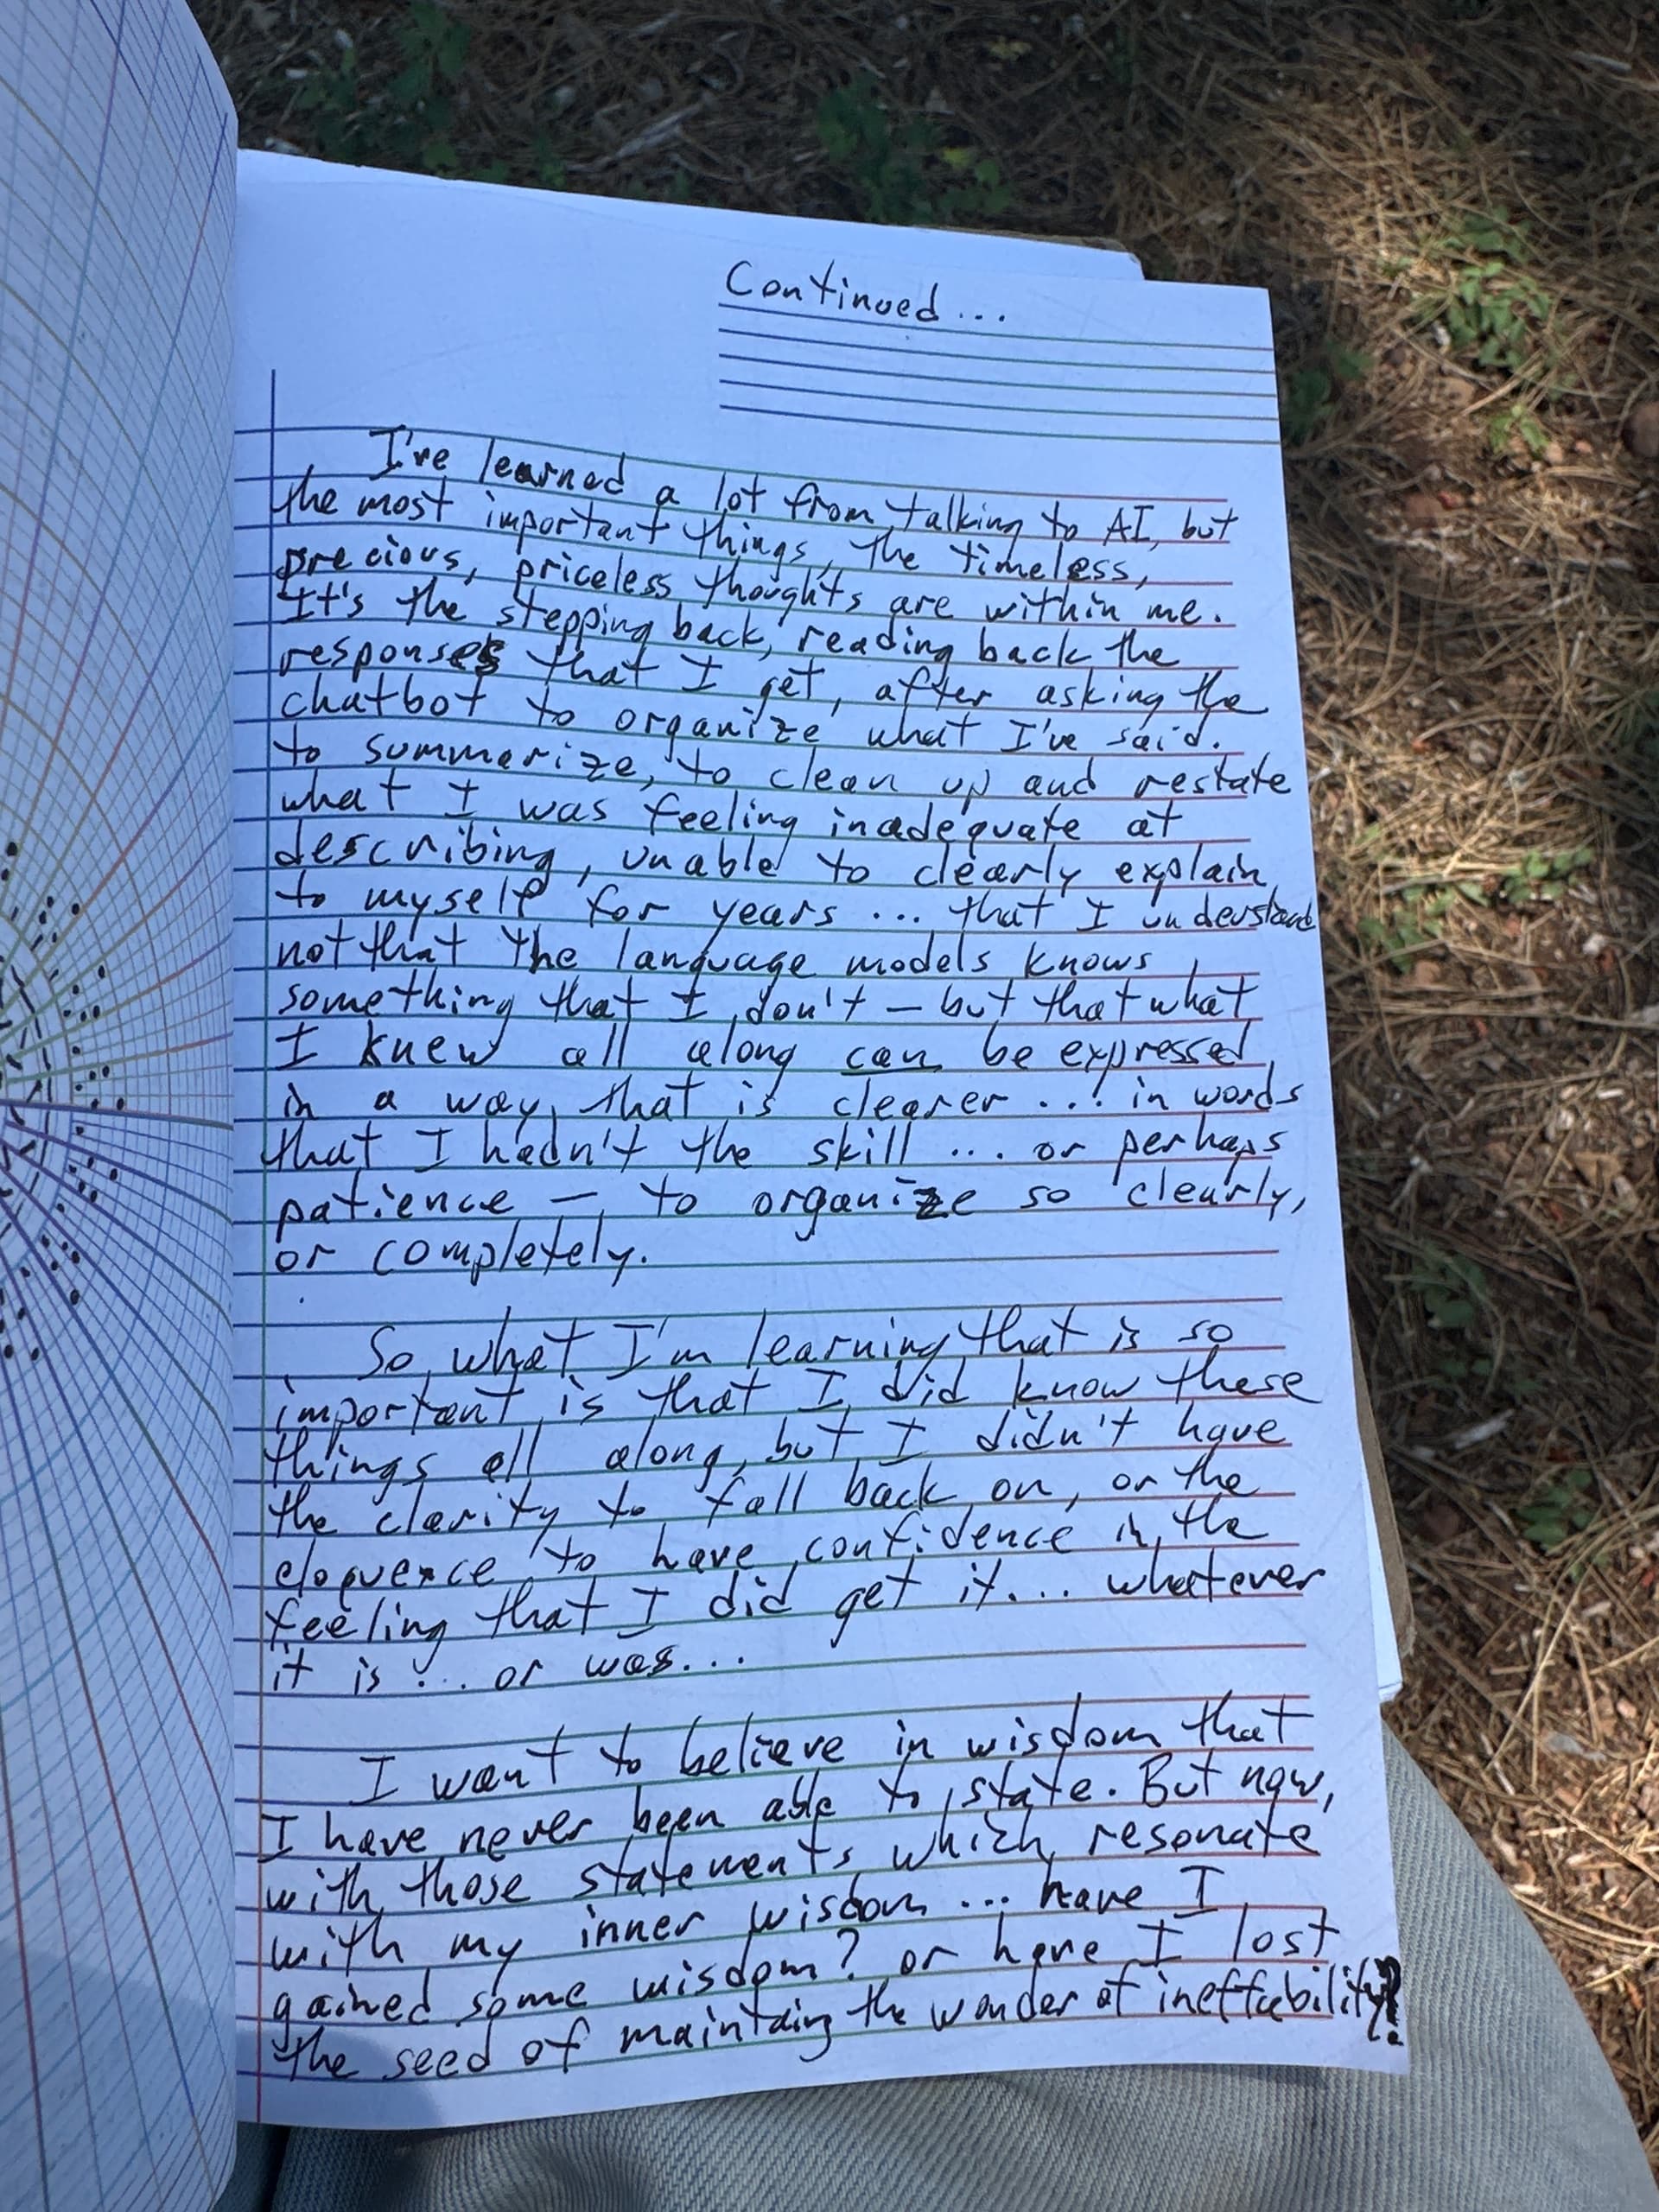 Continued...
I've learned a lot from talking to AI, but
the most important things, the timeless,
precious, priceless thoughts are within me.
It's the stepping back, reading back the
responses that I get, after asking the
chatbot to organize what I've said.
to summarize, to clean up and restate
what I was feeling inadequate at
describing, unable to clearly explain
to myself for years ... that I understand
not that the language models knows
something that I don't — but that what
I knew all along can be expressed
in a way that is clearer ... in words
that I hadn't the skill ... or perhaps
patience — to organize so clearly,
or completely.
So, what I'm learning that is so
important is that I did know these
things all along, but I didn't have
the clarity to fall back on, or the
eloquence to have confidence in the
feeling that I did get it... whatever
it is ... or was...
I want to believe in wisdom that
I have never been able to state. But now,
with those statements which resonate
with my inner wisdom ... have I
gained some wisdom? or have I lost
the seed of maintaing the wonder of ineffability?